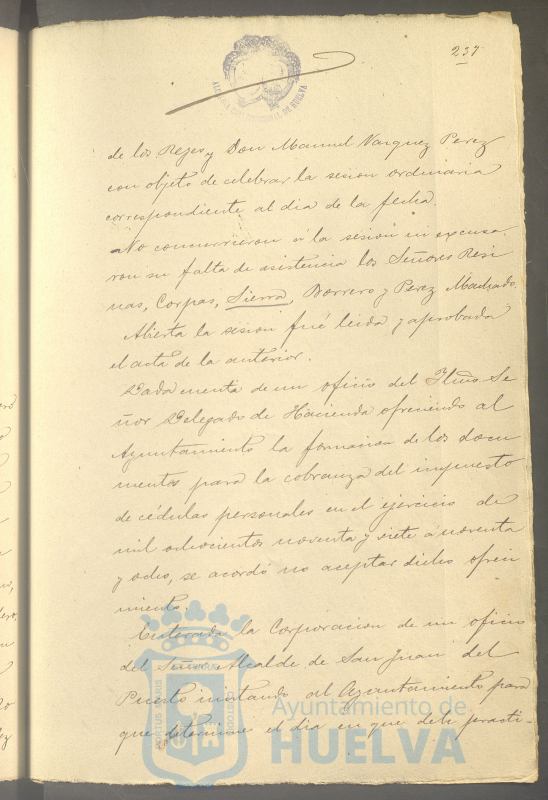 237
ALCALDIA CONSTITUCIONAL DE HUELVA
de los Reyes y Don Manuel Vazquez Perez
con objeto de celebrar la sesion ordinaria
correspondiente al dia de la fecha.
No concurrieron á la sesion ni excusa-
ron su falta de asistencia los Señores Resi
nas, Corpas, Sierra, Borrero y Perez Machado.
Abierta la sesion fué leida y aprobada
el acta de la anterior.
Dada cuenta de un oficio del Iltmo. Se
ñor Delegado de Hacienda ofreciendo al
Ayuntamiento la formacion de los docu
mentos para la cobranza del impuesto
de cédulas personales en el ejercicio de
mil ochocientos noventa y siete á noventa
y ocho, se acordó no aceptar dicho ofreci
miento.
Enterada la Corporacion de un oficio
del Señor Alcalde de San Juan del
Puerto invitando al Ayuntamiento para
que determine el dia en que debe practi-
PORTUS MARIS
ET TERRE CUSTODIA
Ayuntamiento de
HUELVA